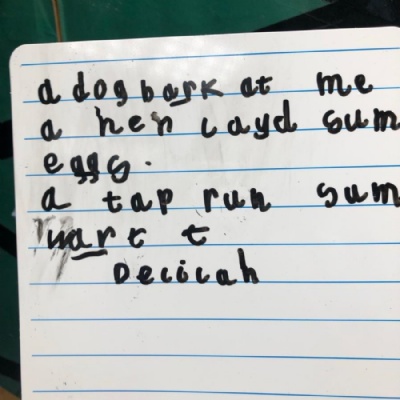 a dog bark at me
a hen layd sum
eggs.
a tap run sum
t